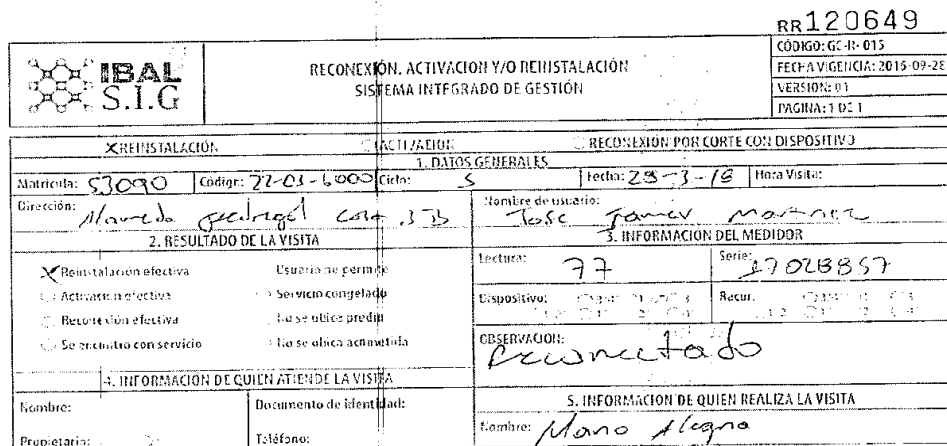 RR120649
IBAL
S.I.G
RECONEXIÓN. ACTIVACION Y/O REINSTALACIÓN
SISTEMA INTEGRADO DE GESTIÓN
CÓDIGO: GC-R-015
FECHA VIGENCIA: 2015-09-28
VERSION: 01
PAGINA: 1 DE 1
REINSTALACIÓN ACTIVACION RECONEXIÓN POR CORTE CON DISPOSITIVO
1. DATOS GENERALES
Matricula: 53090 Código: 22-03-6000 Ciclo: 5 Fecha: 28-3-18 Hora Visita:
Dirección: Alameda pedregal casa Nombre de usuario: Jose Martinez
2. RESULTADO DE LA VISITA
Reinstalación efectiva Usuario no permite
Activacion efectiva Servicio congelado
Reconexión efectiva No se ubica predio
Se encontro con servicio No se ubica acometida
3. INFORMACION DEL MEDIDOR
Lectura: 77 Serie: 17028857
Dispositivo: Racor.
OBSERVACION:
Reconectado
4. INFORMACION DE QUIEN ATIENDE LA VISITA
Nombre: Documento de identidad:
Propietario: Teléfono:
5. INFORMACION DE QUIEN REALIZA LA VISITA
Nombre: Mario